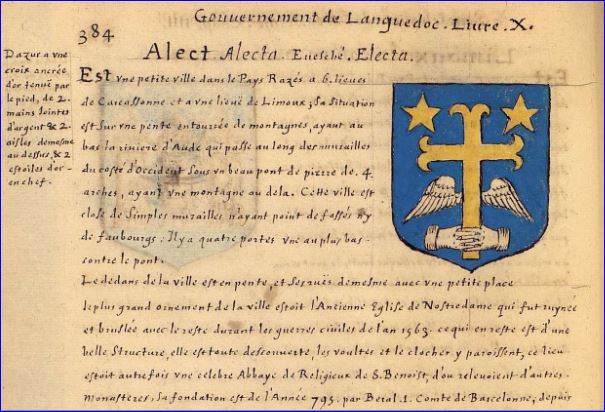 Gouuernement de Languedoc. Liure. X.
384
Alect Alecta. Euesché. Electa.
Dazur a vne
croix ancrée
d'or tenuë par
le pied, de 2.
mains Iointes
d'argent & 2.
aisles demesme
au dessus, & 2
estoiles d'or
en chef.
Est vne petite ville dans le Pays Razés a 6. lieues
de Carcassonne et a vne lieuë de Limoux; Sa Situation
est Sur vne pente entourrée de montagnes, ayant au
bas la riuiere d'Aude qui passe au long des murailles
du costé d'Occident Sous vn beau pont de pierre de. 4.
arches, ayant vne montagne au dela. Cette ville est
close de Simples murailles n'ayant point de fossés ny
de faubourgs; Il y a quatre portes vne au plus bas
contre le pont.
Le dedans de la ville est en pente, et Ses ruës demesme auec vne petite place
le plus grand ornement de la ville estoit l'Anciene Eglise de Nostredame qui fut ruynée
et bruslée auec le reste durant les guerres ciuiles de l'an 1563. ce qui en reste est d'une
belle Structure, elle est toute descouuerte, les voultes et le clocher y paroissent, ce lieu
estoit autrefois vne celebre Abbaye de Religieux de S. Benoist, d'ou releuoient d'autres
monasteres, Sa fondation est de l'Année 795. par Beral. I. Comte de Barcelonne, depuis